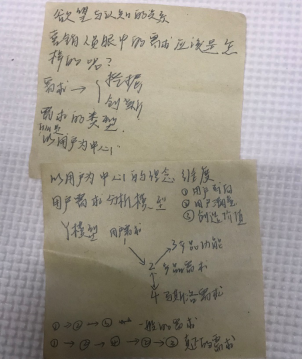 欲望与认知的关系
营销人员眼中的需求应该是怎
样的呢？
需求 → 挖掘
创新
需求的类型
以用户为中心
以用户为中心的理念 维度
用户需求分析模型 ①用户
②用户
③创造价值
Y模型 用户需求
3 产品功能
2 产品需求
4
① → ② → ③ 一般的需求
① → ② → ④ → ② → ③ 的需求